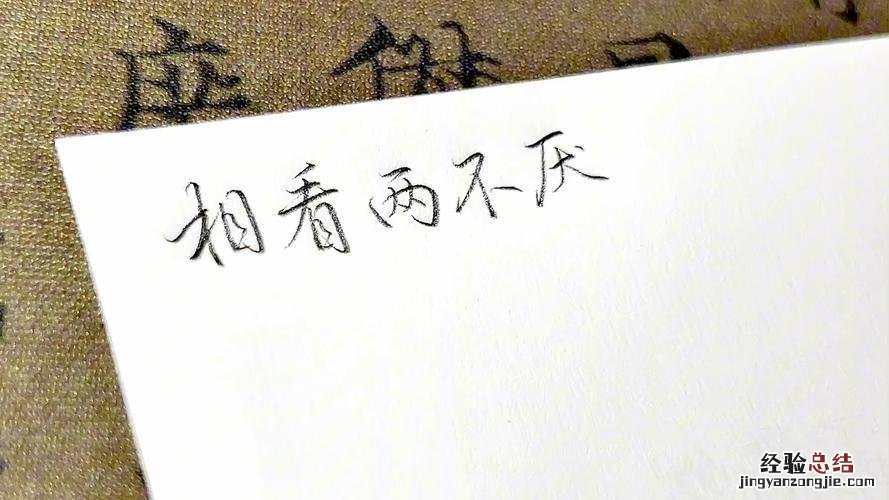 相看两不厌
经验总结
jingyanzongjie.com